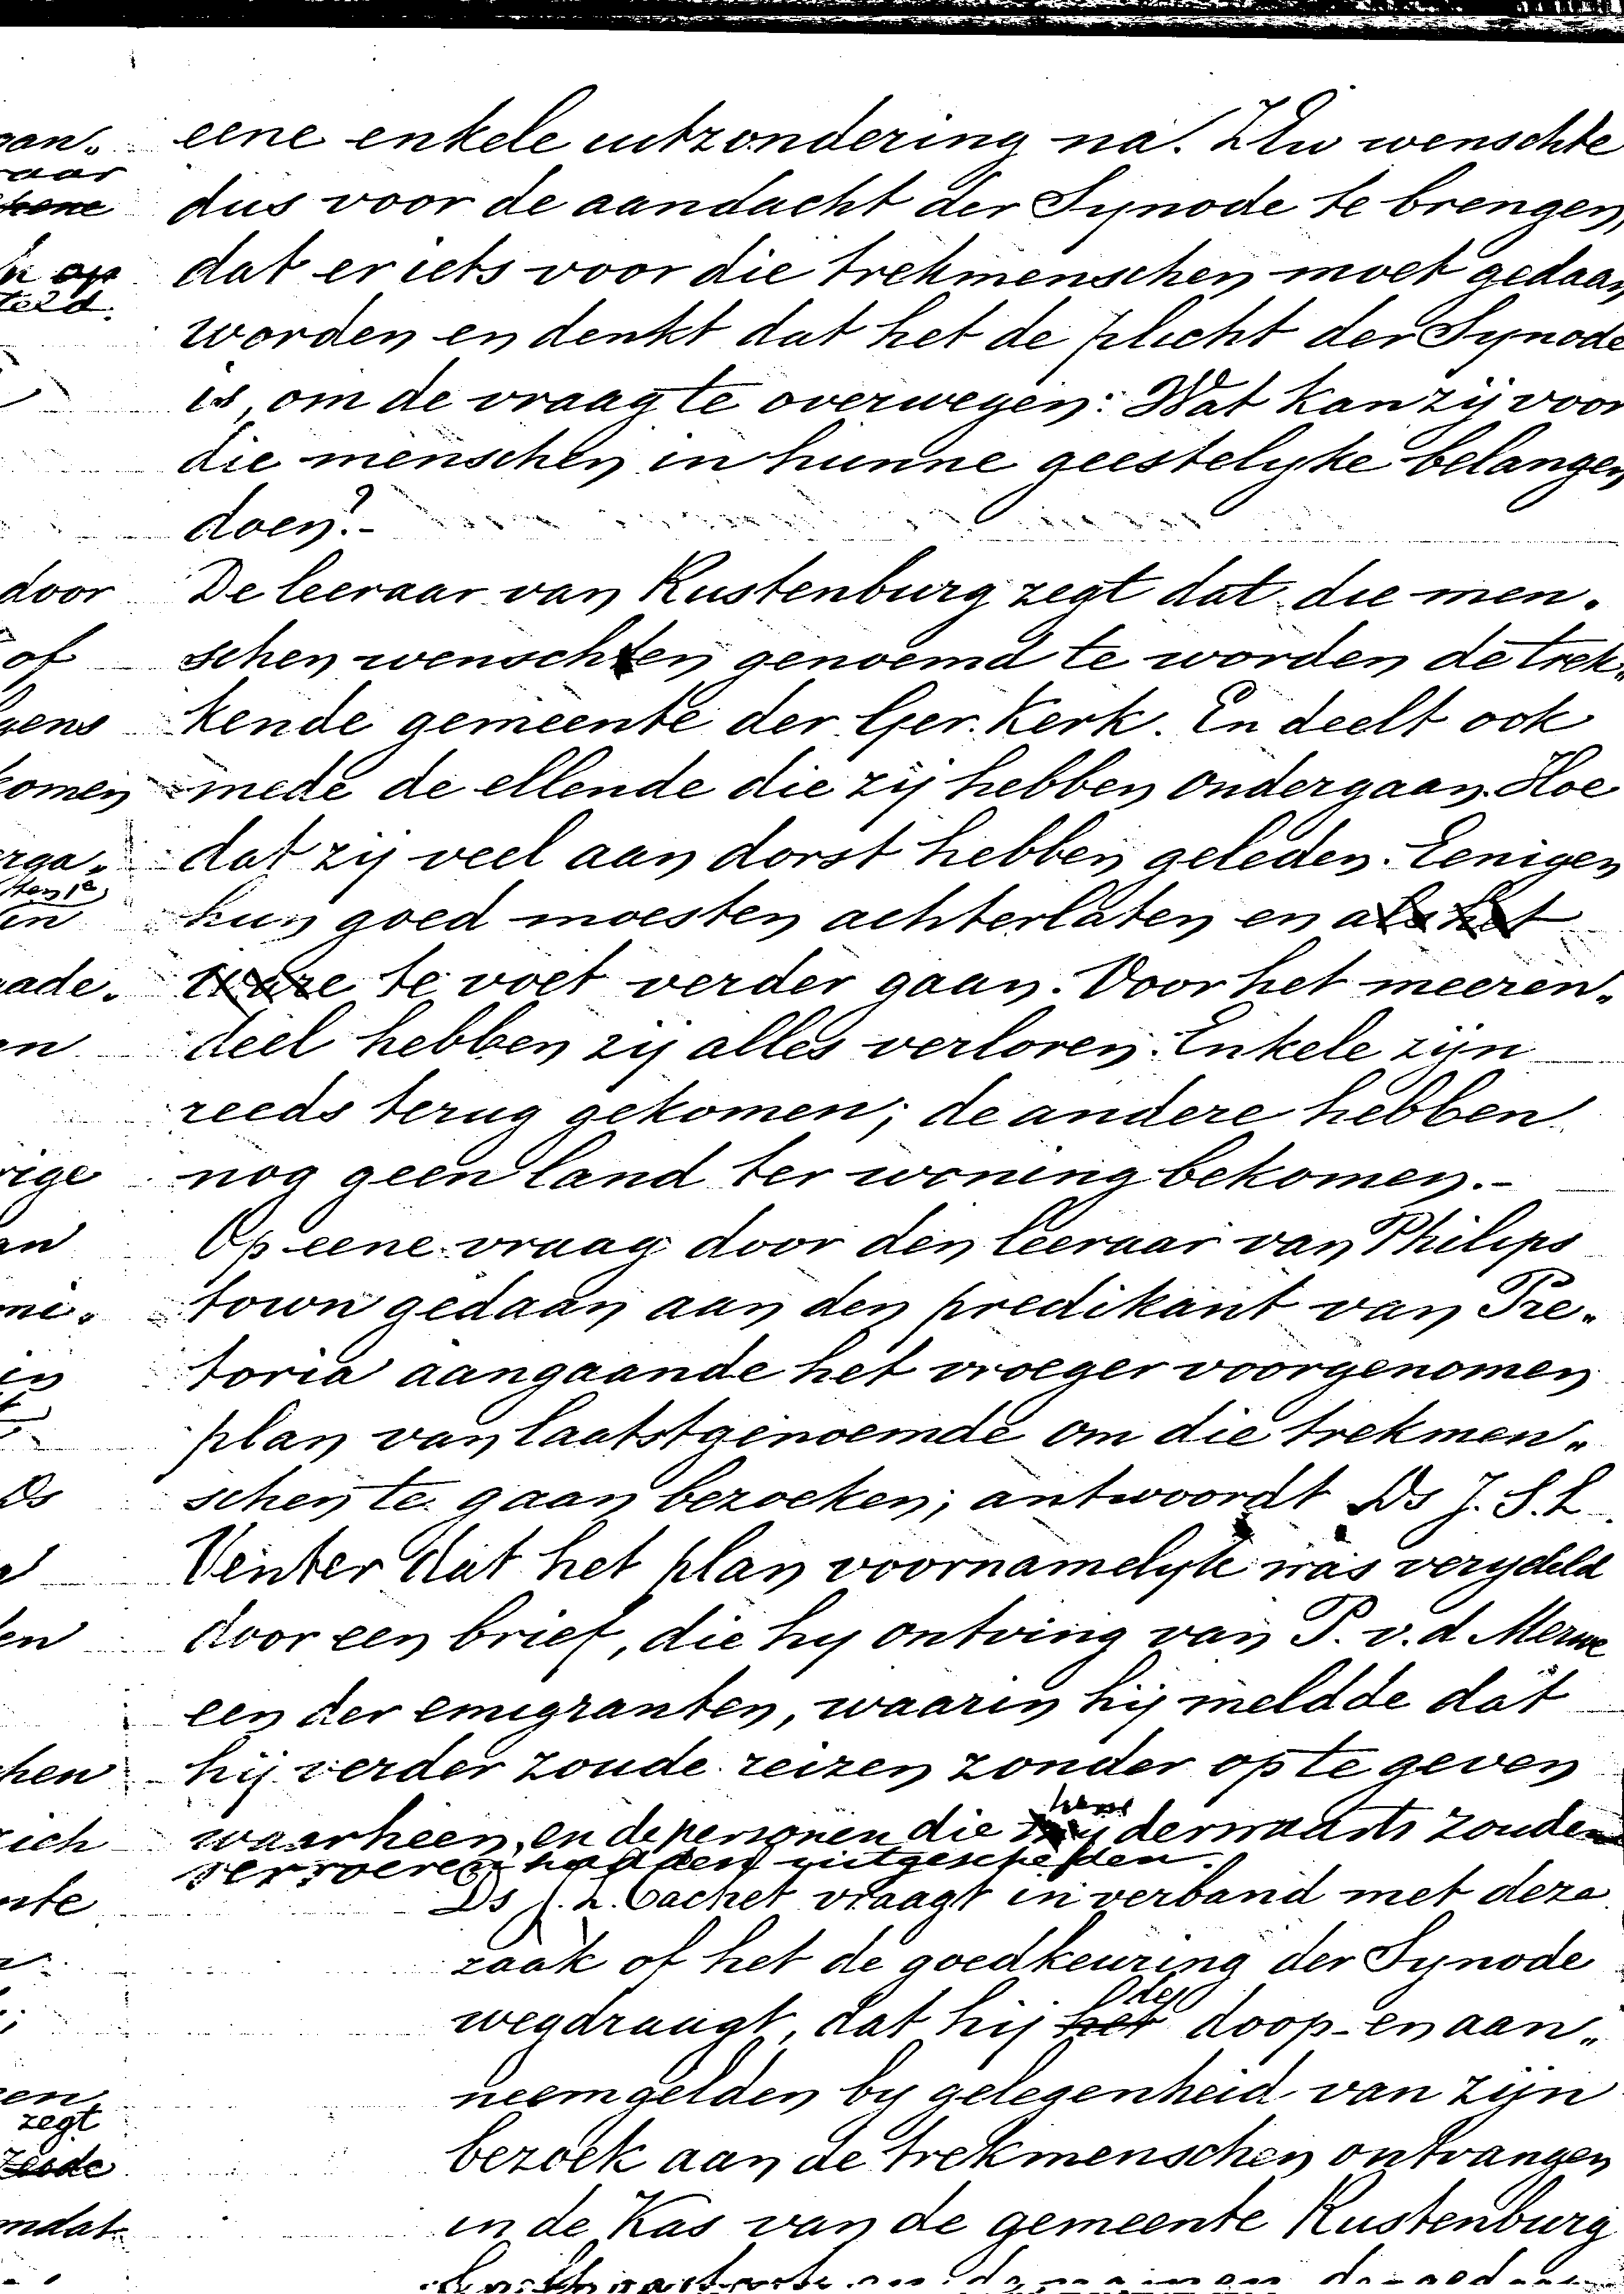 eene enkele uitzondering na. ZEw wenschte
dus voor de aandacht der Synode te brengen,
dat er iets voor die trekmenschen moet gedaan
worden en denkt dat het de plicht der Synode
is, om de vraag te overwegen: Wat kan zij voor
die menschen in hunne geestelyke belangen
doen?-
De leeraar van Rustenburg zegt dat die men„
schen wenschten genoemd te worden de trek„
kende gemeente der Ger. Kerk. En deelt ook
mede de ellende die zij hebben ondergaan. Hoe
dat zij veel aan dorst hebben geleden. Eenigen
hun goed moesten achterlaten en als het
ware te voet verder gaan. Voor het meeren„
deel hebben zij alles verloren. Enkele zijn
reeds terug gekomen; de andere hebben
nog geen land ter woning bekomen.-
Op eene vraag door den leeraar van Philips
town gedaan aan den predikant van Pre„
toria aangaande het vroeger voorgenomen
plan van laatstgenoemde om die trekmen„
schen te gaan bezoeken; antwoordt Ds J. S. L.
Venter dat het plan voornamelyk was verydeld
door een brief, die hy ontving van P. v. d Merwe
een der emigranten, waarin hij meldde dat
hij verder zoude reizen zonder op te geven
waarheen, en de personen die hem derwaarts zouden
vervoeren hadden uitgescheiden.
Ds J. L. Cachet vraagt in verband met deze
zaak of het de goedkeuring der Synode
wegdraagt, dat hij het de doop- en aan„
neemgelden by gelegenheid van zijn
bezoek aan de trekmenschen ontvangen
in de Kas van de gemeente Rustenburg